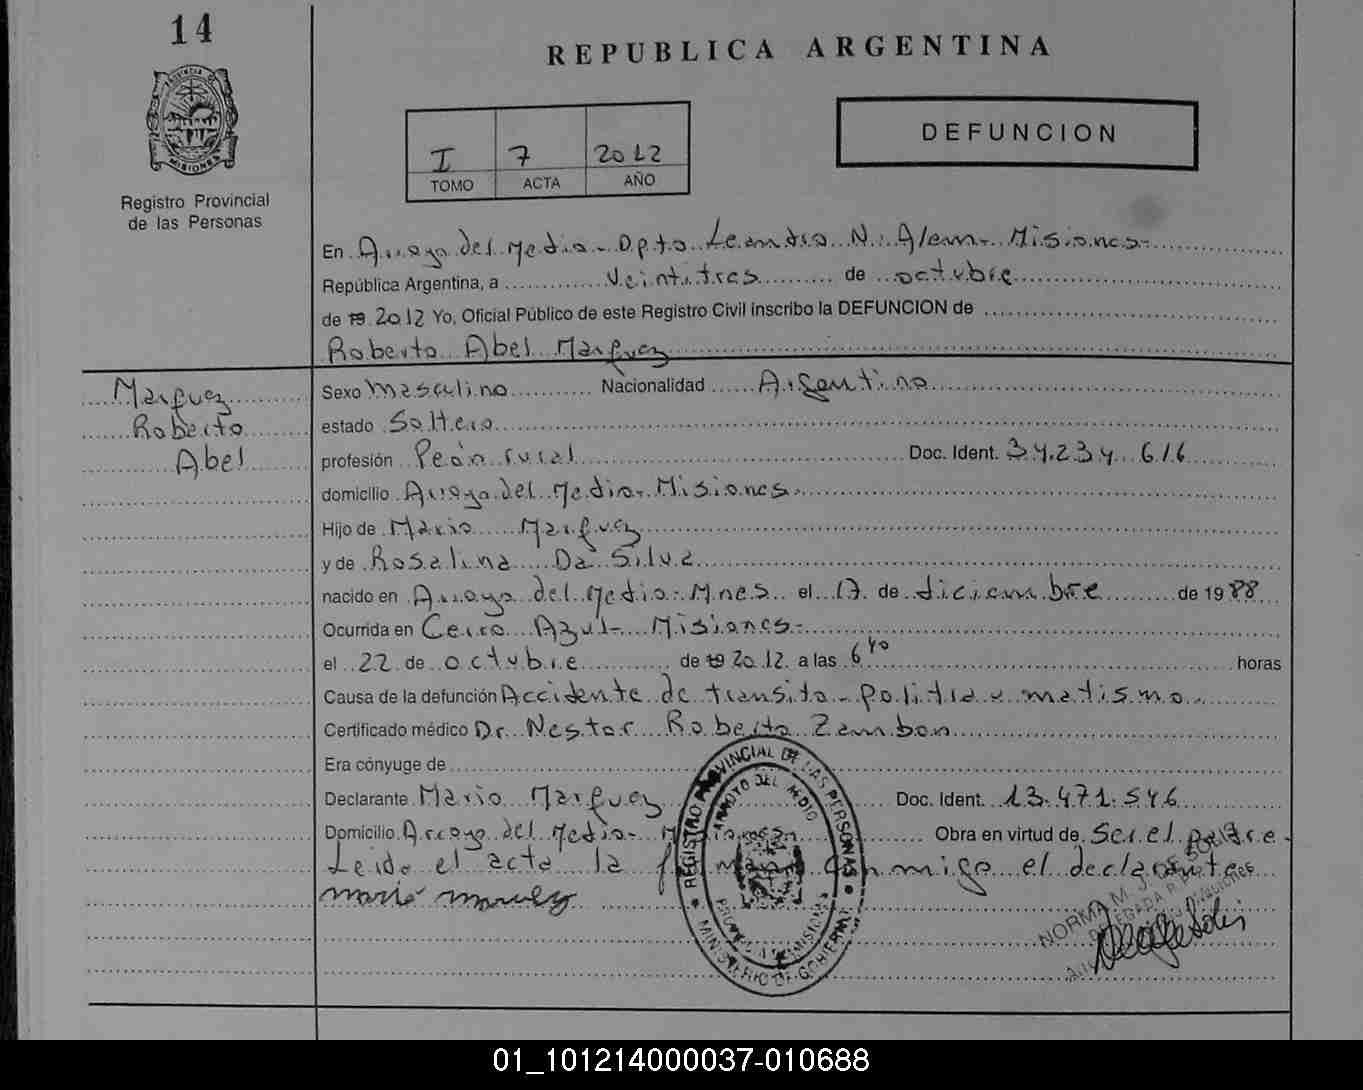 14
REPUBLICA ARGENTINA
PROVINCIA DE
MISIONES
Registro Provincial
de las Personas
DEFUNCION
I 7 2012
TOMO ACTA AÑO
En Arroyo del Medio - Dpto Leandro N. Alem - Misiones -
República Argentina, a Veintitres de octubre
de 19 2012 Yo, Oficial Público de este Registro Civil inscribo la DEFUNCION de
Roberto Abel Marquez
Marquez
Roberto
Abel
Sexo Masculino Nacionalidad Argentino
estado Soltero
profesión Peón rural Doc. Ident. 34.234.616
domicilio Arroyo del Medio - Misiones.
Hijo de Mario Marquez
y de Rosalina Da Silva
nacido en Arroyo del Medio - Mnes el 17 de diciembre de 1988
Ocurrida en Cerro Azul - Misiones -
el 22 de octubre de 19 2012 a las 6 40 horas
Causa de la defunción Accidente de transito - politraumatismo.
Certificado médico Dr. Nestor Roberto Zambon
Era cónyuge de
Declarante Mario Marquez Doc. Ident. 13.471.546
Domicilio Arroyo del Medio - Misiones Obra en virtud de Ser el padre -
Leido el acta la firman conmigo el declarante
Mario Marquez
REGISTRO PROVINCIAL DE LAS PERSONAS
ARROYO DEL MEDIO
PROVINCIA MISIONES
MINISTERIO DE GOBIERNO
NORMA M. J. DE
DELEGADA R.P.
Misiones
01_101214000037-010688